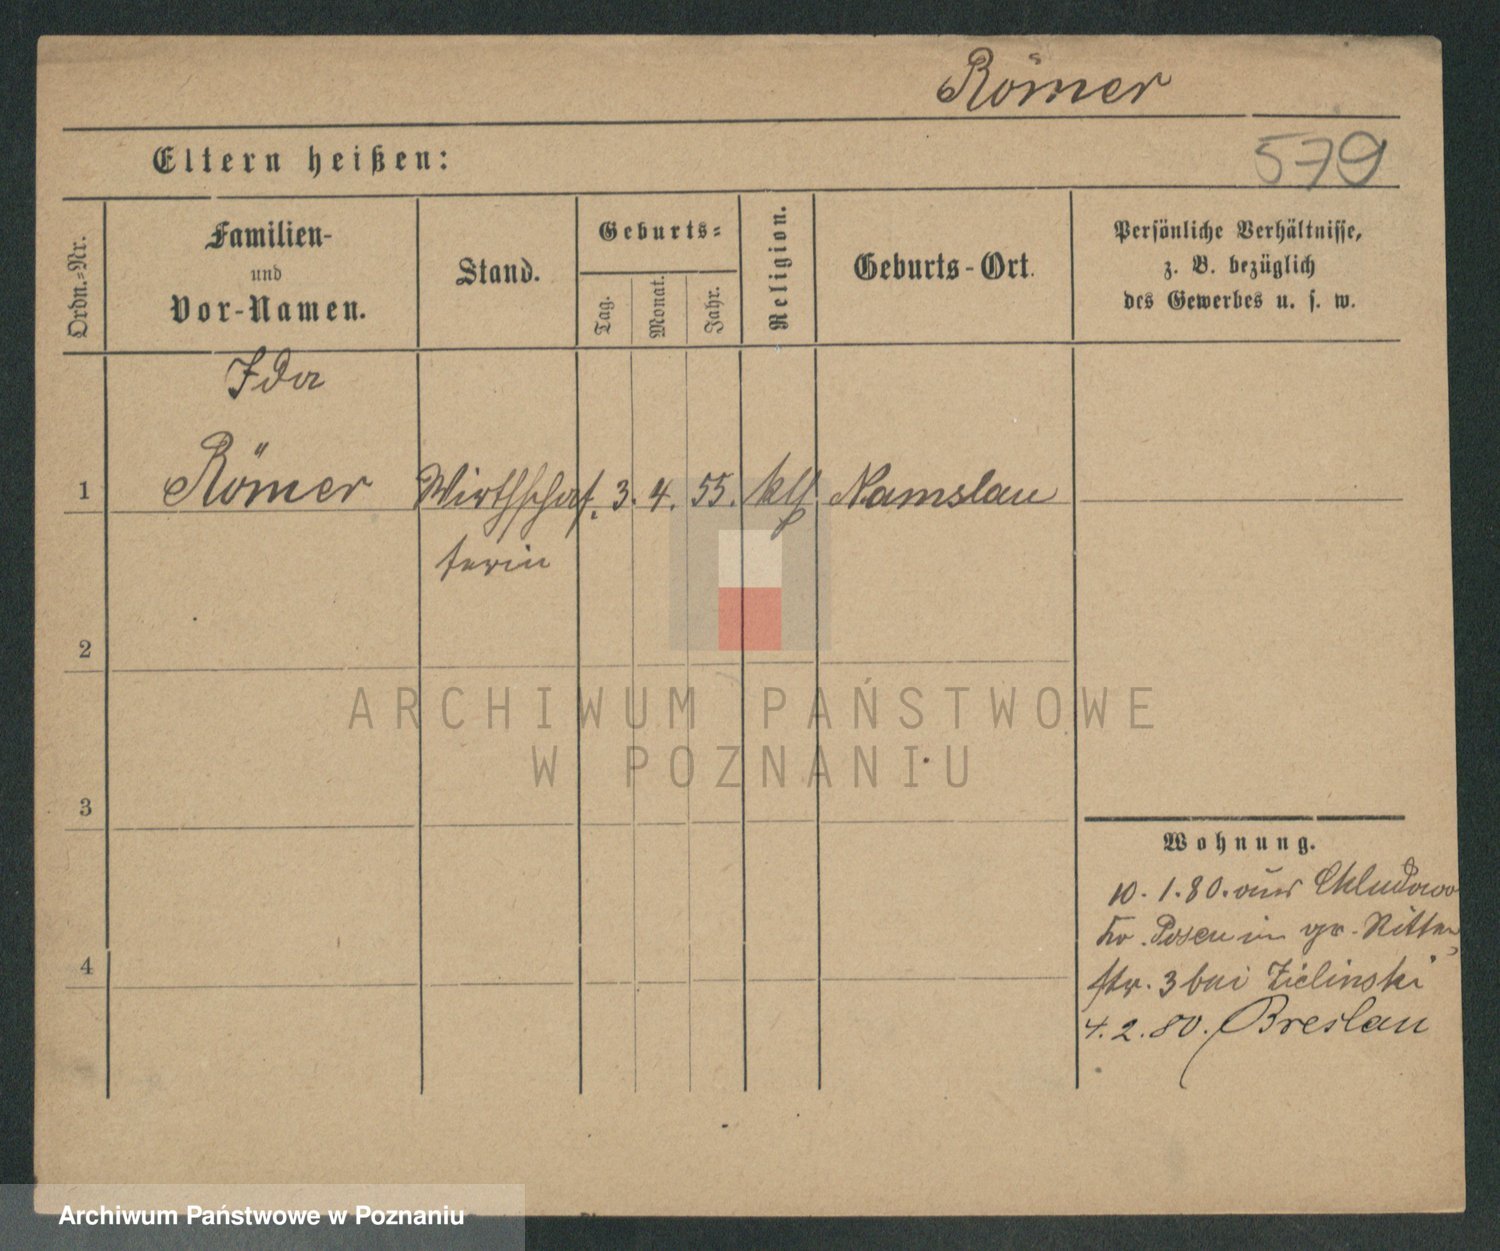 Römer
579
Eltern heißen:
Ordn.-Nr.
Familien-
und
Vor-Namen.
Stand.
Geburts-
Tag.
Monat.
Jahr.
Religion.
Geburts-Ort.
Persönliche Verhältnisse,
z. B. bezüglich
des Gewerbes u. s. w.
Ida
1 Römer Wirthschaf- 3. 4. 55. kth Namslau
terin
2
3
4
ARCHIWUM PAŃSTWOWE
W POZNANIU
Wohnung.
10. 1. 80. aus Chludowo
Kr. Posen in gr. Ritter
str. 3 bei Zielinski
4. 2. 80. Breslau
Archiwum Państwowe w Poznaniu